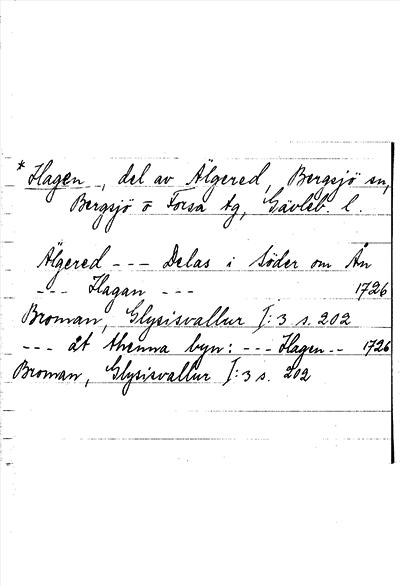 * Hagen, del av Älgered, Bergsjö sn,
Bergsjö o Forsa tg, Gävleb. l.
Älgered --- Delas i Söder om Ån
--- Hagan --- 1726
Broman, Glysisvallur I:3 s. 202
--- åt thenna byn: --- Hagen -- 1726
Broman, Glysisvallur I:3 s. 202